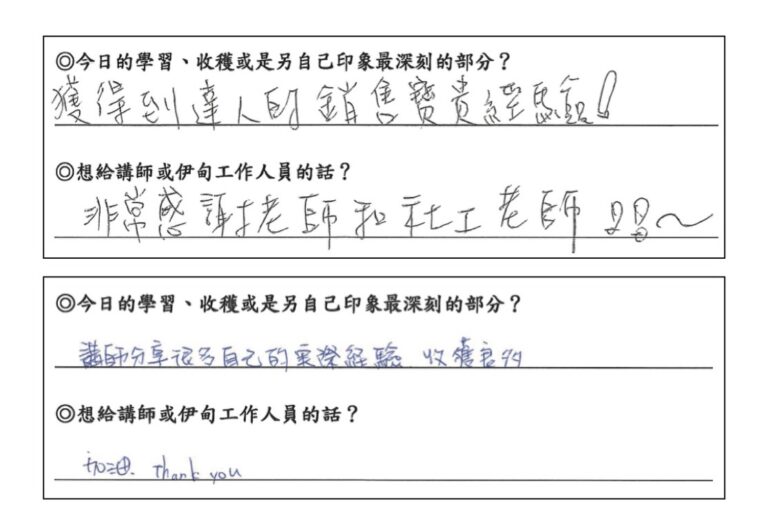 ◎今日的學習、收穫或是另自己印象最深刻的部分？
獲得到達人的銷售寶貴經驗!
◎想給講師或伊甸工作人員的話？
非常感謝老師和社工老師
◎今日的學習、收穫或是另自己印象最深刻的部分？
講師分享很多自己的實際經驗 收穫良多
◎想給講師或伊甸工作人員的話？
加油. Thank you